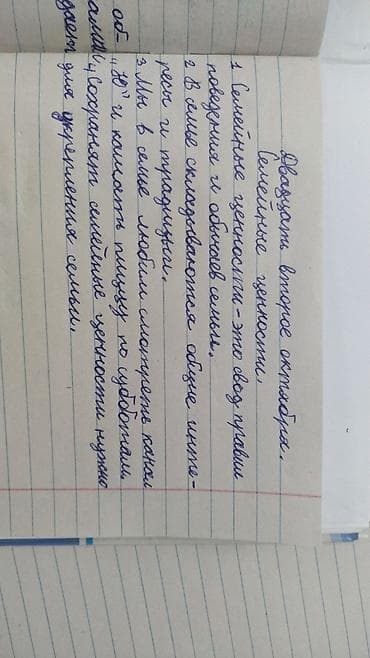 Двадцать второе октября.
Семейные ценности.
1 Семейные ценности - это свод правил
поведения и обычаев семьи.
2 В семье складываются общие инте-
ресы и традиции.
3 Мы в семье любим смотреть канал
"Ю" и кашать пиццу по субботам.
4 Сохранят семейные ценности нужно
для укрепления семьи.
об-